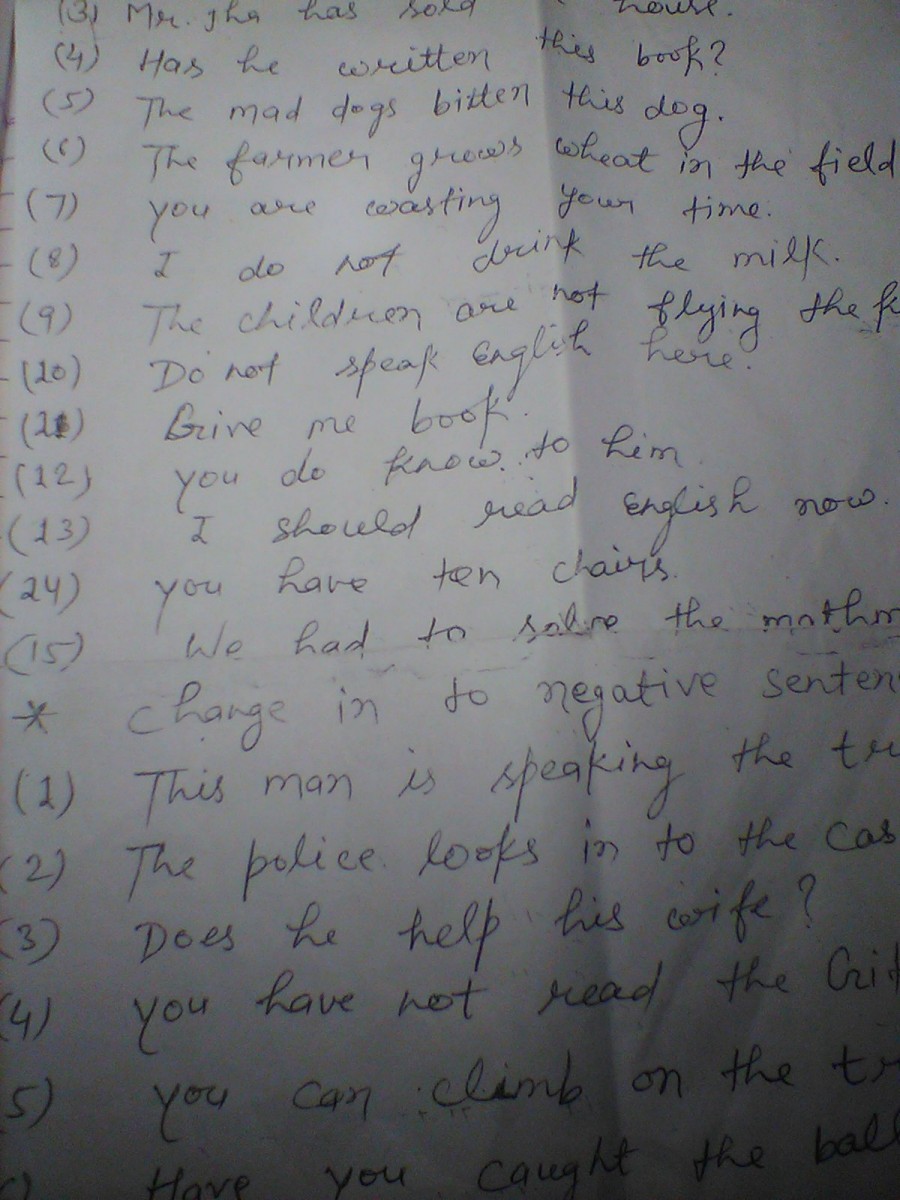 (3) Mr. Jha has sold house.
(4) Has he written this book?
(5) The mad dogs bitten this dog.
(6) The farmer grows wheat in the field
(7) you are wasting your time.
(8) I do not drink the milk.
(9) The children are not flying the
(10) Do not speak English here.
(11) Give me book.
(12) you do know to him.
(13) I should read English now.
(14) you have ten chairs.
(15) We had to solve the mathm
* Change in to negative senten
(1) This man is speaking the tr
(2) The police looks in to the cas
(3) Does he help his wife?
(4) you have not read the Git
5) you can climb on the tr
Have you caught the ball